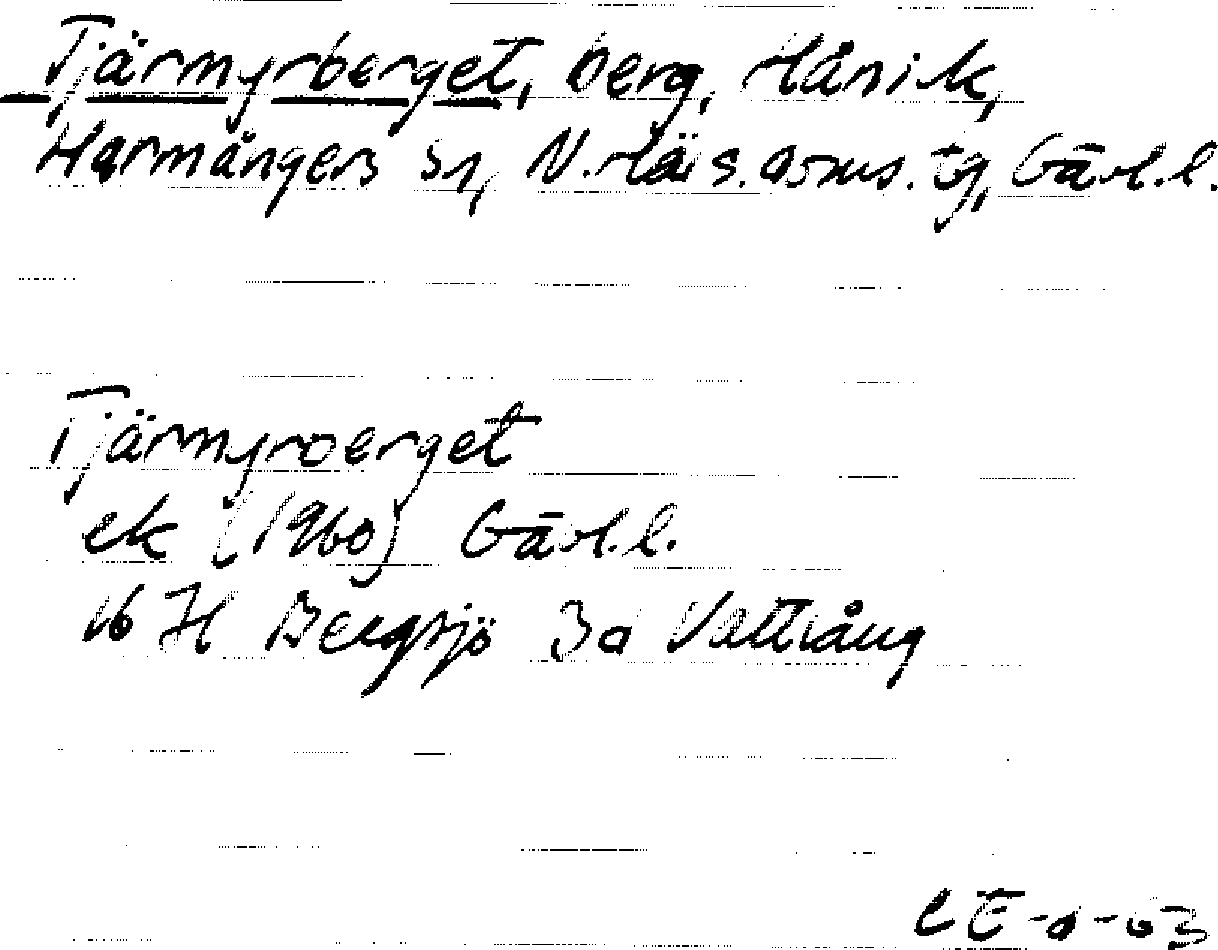 Tjärmyrberget, berg, Hånick,
Harmångers sn, N. Häls. doms. tg, Gävl.l.
Tjärmyrberget
ek (1960) Gävl.l.
16 H Bergsjö 3d Vattlång